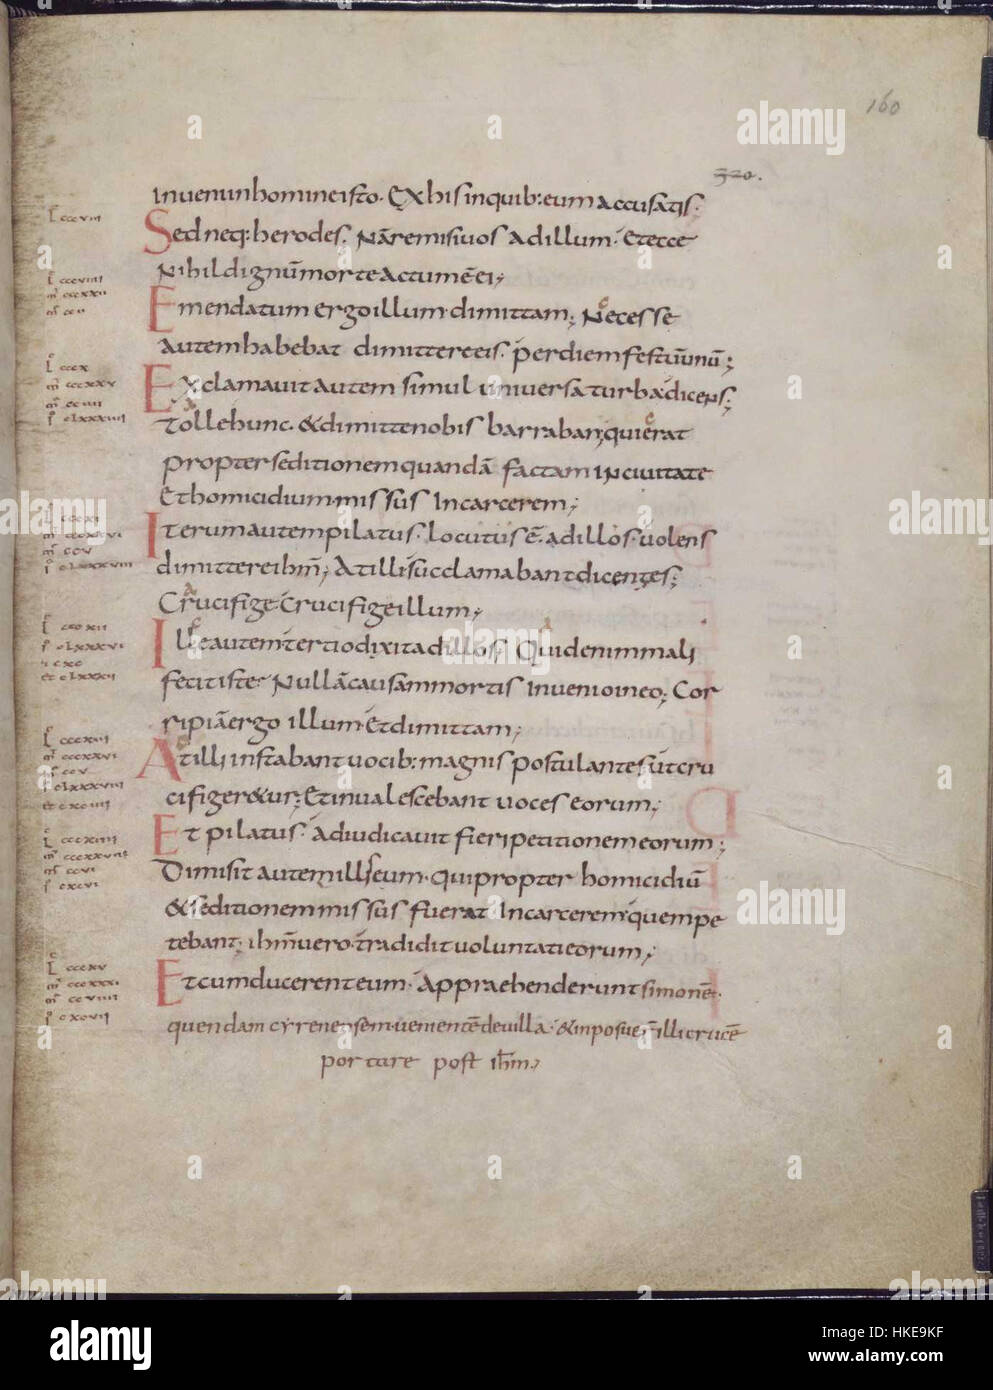 160
320.
inueni in homine isto. Ex his in quib: eum accusatis;
Sed neq: herodes. Nā remisi uos ad illum. Et ecce
Nihil dignū morte actum ē ei;
Emendatum ergo illum dimittam; Necesse
autem habebat dimittere eis. per diem festū unū;
Exclamauit autem simul uniuersa turba dicens;
Tolle hunc. & dimitte nobis barraban; qui erat
propter seditionem quandā factam in ciuitate
Et homicidium missus In carcerem;
Iterum autem pilatus. Locutus ē ad illos. uolens
dimittere ihm̄; At illi succlamabant dicentes;
Crucifige. Crucifige illum;
Ille autem tertio dixit ad illos; Quid enim mali
fecit iste. Nullā causam mortis Inuenio in eo; Cor
ripiā ergo illum. Et dimittam;
At illi instabant uocib: magnis postulantes ut cru
cifiger&ur; Et inualescebant uoces eorum;
Et pilatus. adiudicauit fieri petitionem eorum;
Dimisit autem illis eum. qui propter homicidiū
& seditionem missus fuerat In carcerem. quem pe
tebant; ihm̄ uero. tradidit uoluntati eorum;
Et cum ducerent eum. Appraehenderunt simonem
quendam cyrenensem. uenientē de uilla. & inposuer̄ illi crucē
portare post ihm̄;
L cccviii
L cccviiii
L cccx
L cccxii
L cccxiii
L cccxiiii
L cccxv
alamy
alamy
HKE9KF
www.alamy.com